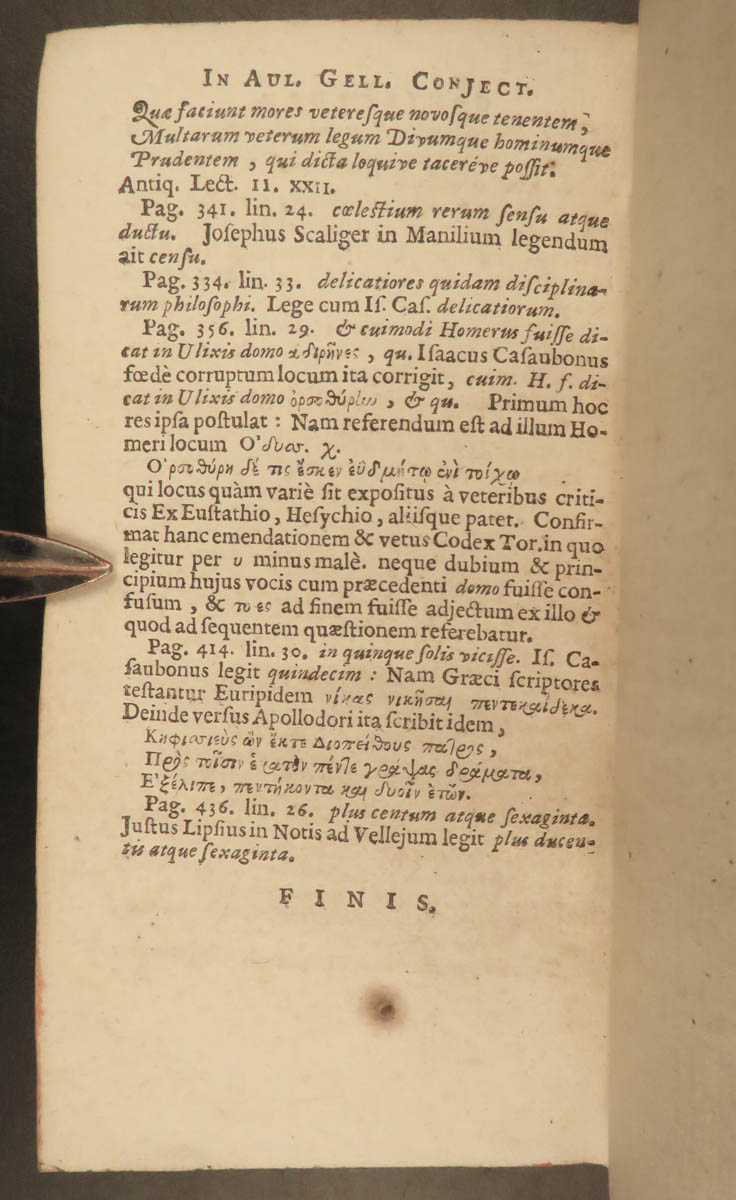 IN AUL. GELL. CONJECT.
Quæ faciunt mores vetereſque novoſque tenentem,
Multarum veterum legum Divumque hominumque
Prudentem, qui dicta loquive tacereve poſſit.
Antiq. Lect. II. XXII.
Pag. 341. lin. 24. cœleſtium rerum ſenſu atque
ductu. Joſephus Scaliger in Manilium legendum
ait cenſu.
Pag. 334. lin. 33. delicatiores quidam diſciplina-
rum philoſophi. Lege cum Iſ. Caſ. delicatiorum.
Pag. 356. lin. 29. & cuimodi Homerus fuiſſe di-
cat in Ulixis domo , qu. Iſaacus Caſaubonus
fœdè corruptum locum ita corrigit, cuim. H. f. di-
cat in Ulixis domo , & qu. Primum hoc
res ipſa poſtulat : Nam referendum eſt ad illum Ho-
meri locum Ὀδυσ. χ.
Ὀρσοθύρη δέ τις ἔσκεν ἐϋδμήτῳ ἐνὶ τοίχῳ
qui locus quàm variè ſit expoſitus à veteribus criti-
cis Ex Euſtathio, Heſychio, aliiſque patet. Confir-
mat hanc emendationem & vetus Codex Tor. in quo
legitur per υ minus malè. neque dubium & prin-
cipium hujus vocis cum præcedenti domo fuiſſe con-
fuſum, & το ες ad finem fuiſſe adjectum ex illo &
quod ad ſequentem quæſtionem referebatur.
Pag. 414. lin. 30. in quinque ſolis viciſſe. Iſ. Ca-
ſaubonus legit quindecim : Nam Græci ſcriptores
teſtantur Euripidem νίκας νικῆσαι πεντεκαίδεκα.
Deinde verſus Apollodori ita ſcribit idem,
Κηφισιεὺς ὢν ἐκ τε Διοπείθους πατρὸς,
Πρὸς τοῖσιν ἑκατὸν πέντε γράψας δράματα,
Ἐξέλιπε, πεντήκοντα καὶ δυοῖν ἐτῶν.
Pag. 436. lin. 26. plus centum atque ſexaginta.
Juſtus Lipſius in Notis ad Vellejum legit plus ducen-
tis atque ſexaginta.
FINIS.